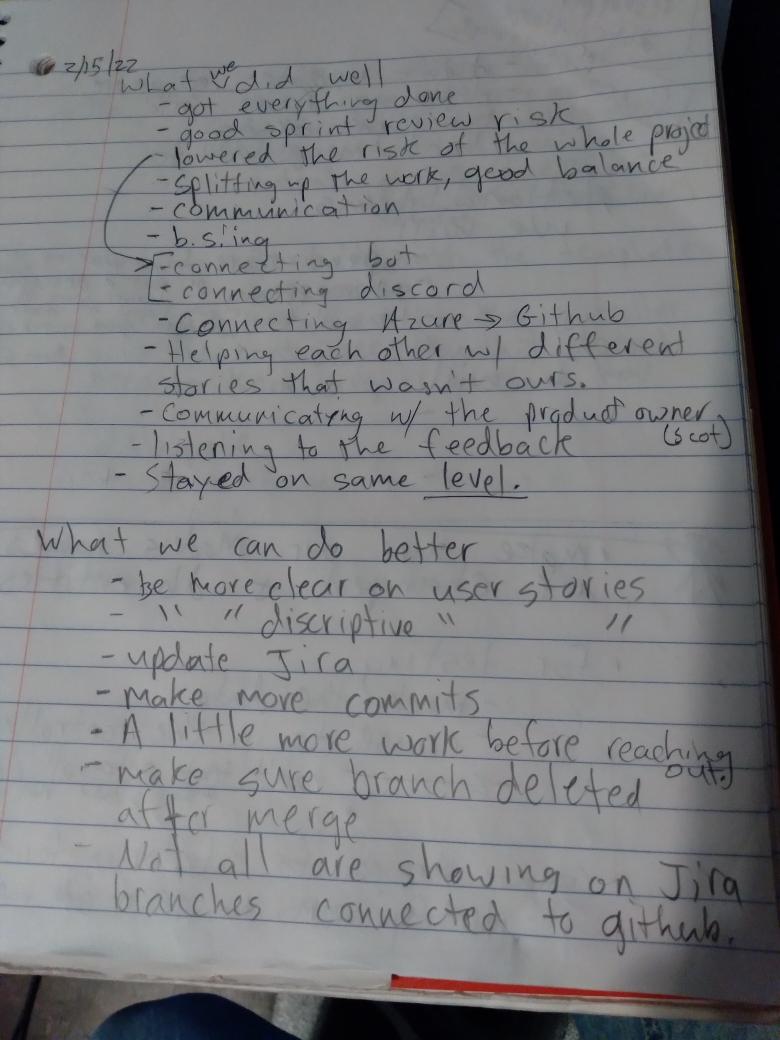 2/15/22
What we did well
- got everything done
- good sprint review risk
- lowered the risk of the whole project
- splitting up the work, good balance
- communication
- b.s.'ing
- connecting bot
- connecting discord
- Connecting Azure → Github
- Helping each other w/ different
stories that wasn't ours.
- Communicating w/ the product owner
(scot)
- listening to the feedback
- Stayed on same level.
What we can do better
- be more clear on user stories
- " " discriptive " "
- update Jira
- make more commits
- A little more work before reaching
out.
- make sure branch deleted
after merge
- Not all are showing on Jira
branches connected to github.